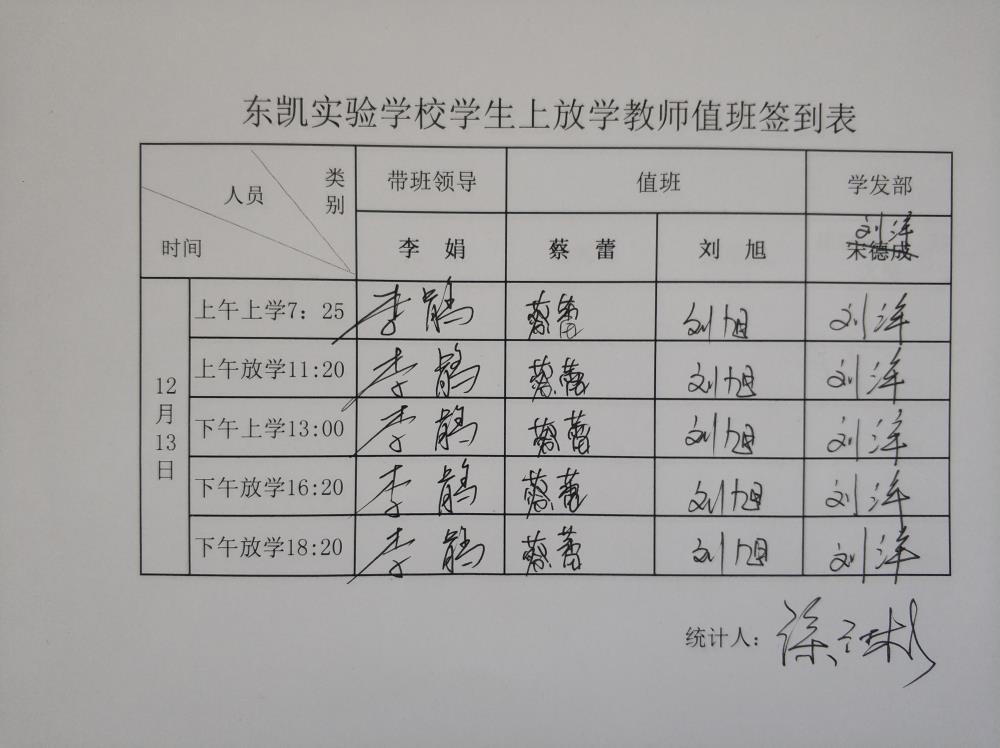 东凯实验学校学生上放学教师值班签到表
人员 类别 时间 带班领导 值班 学发部
李娟 蔡蕾 刘旭 刘洋 宋德成
12月13日
上午上学7：25 李娟 蔡蕾 刘旭 刘洋
上午放学11:20 李娟 蔡蕾 刘旭 刘洋
下午上学13:00 李娟 蔡蕾 刘旭 刘洋
下午放学16:20 李娟 蔡蕾 刘旭 刘洋
下午放学18:20 李娟 蔡蕾 刘旭 刘洋
统计人：